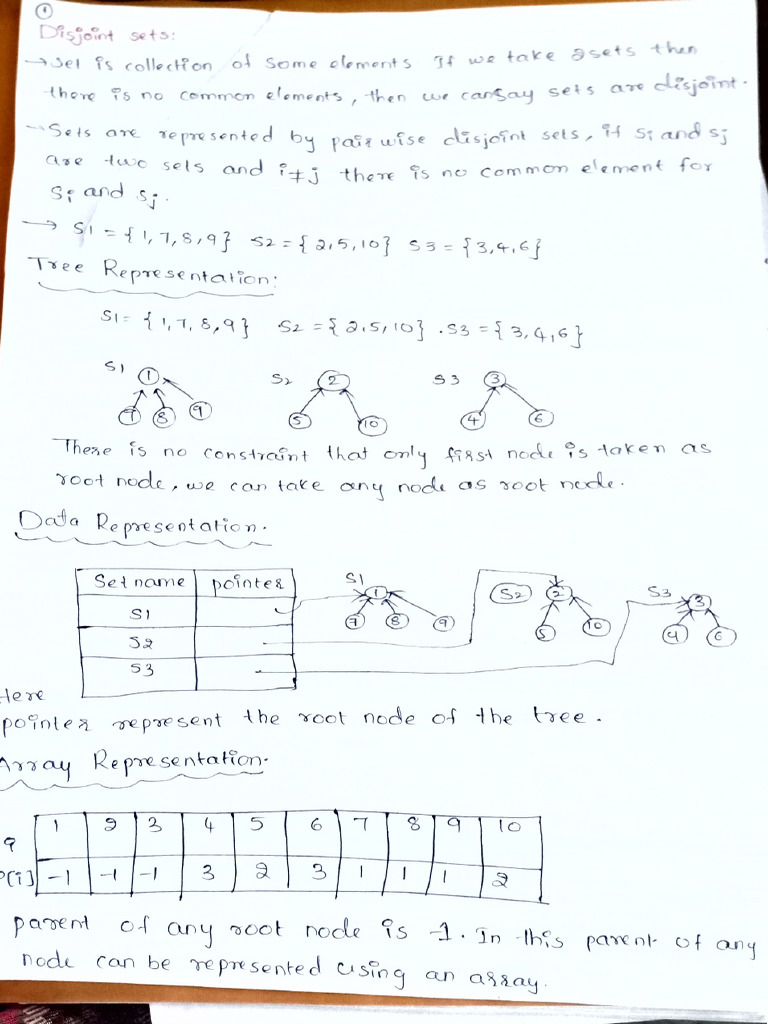 1
Disjoint sets:
→ Set is collection of some elements If we take 2sets then
there is no common elements, then we cansay sets are disjoint.
→ Sets are represented by pair wise disjoint sets, if Si and Sj
are two sets and i≠j there is no common element for
Si and Sj.
→ S1 = {1,7,8,9} S2 = {2,5,10} S3 = {3,4,6}
Tree Representation:
S1 = {1,7,8,9} S2 = {2,5,10} . S3 = {3,4,6}
S1 1 S2 2 S3 3
7 8 9 5 10 4 6
There is no constraint that only first node is taken as
root node, we can take any node as root node.
Data Representation.
Set name pointer S1 1 S2 2 S3 3
S1 7 8 9 5 10 4 6
S2
S3
Here
pointer represent the root node of the tree.
Array Representation.
i 1 2 3 4 5 6 7 8 9 10
P[i] -1 -1 -1 3 2 3 1 1 1 2
parent of any root node is -1. In this parent of any
node can be represented using an array.